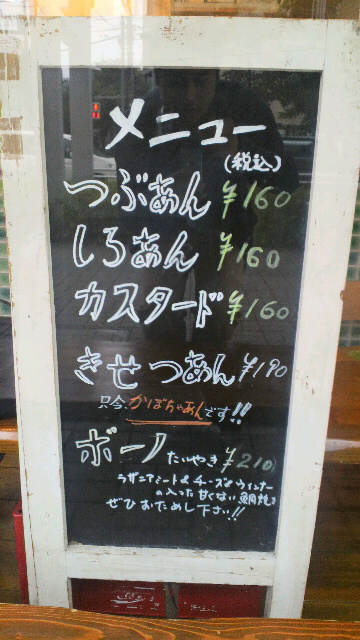 メニュー
(税込)
つぶあん ¥160
しろあん ¥160
カスタード ¥160
きせつあん ¥190
只今、かぼちゃあんです!!
ボーノたいやき ¥210
ラザニアシート&チーズ&ウインナー
の入った甘くない鯛焼き
ぜひおためし下さい!!